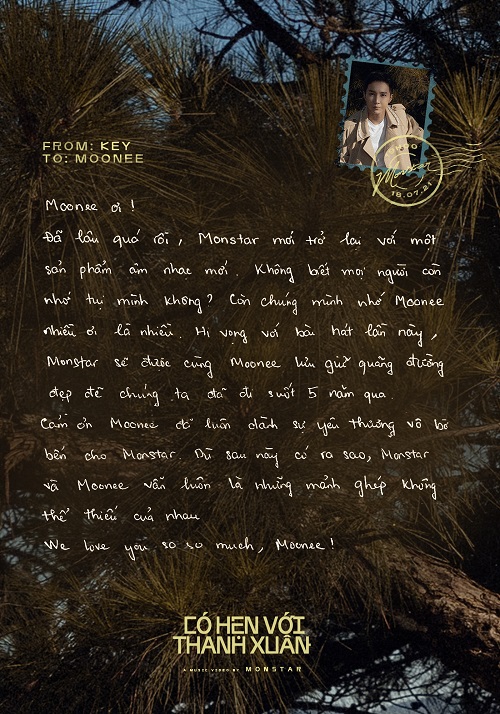 FROM: KEY
TO: MOONEE
Monstar
18.07.21
Moonee ơi !
Đã lâu quá rồi, Monstar mới trở lại với một
sản phẩm âm nhạc mới. Không biết mọi người còn
nhớ tụi mình không? Còn chúng mình nhớ Moonee
nhiều ơi là nhiều. Hi vọng với bài hát lần này,
Monstar sẽ được cùng Moonee lưu giữ quãng đường
đẹp đẽ chúng ta đã đi suốt 5 năm qua.
Cảm ơn Moonee đã luôn dành sự yêu thương vô bờ
bến cho Monstar. Dù sau này có ra sao, Monstar
và Moonee vẫn luôn là những mảnh ghép không
thể thiếu của nhau
We love you so so much, Moonee!
CÓ HẸN VỚI
THANH XUÂN
A MUSIC VIDEO BY MONSTAR